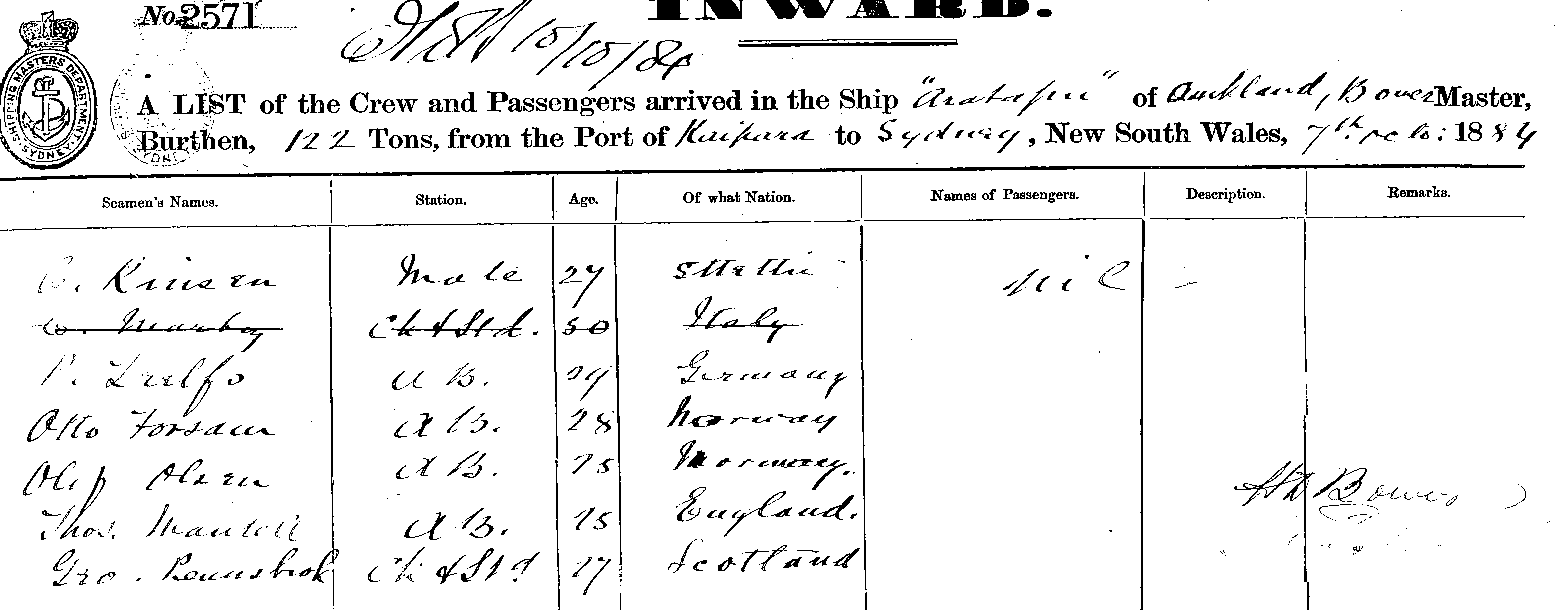 No. 2571
INWARD.
15/10/84
SHIPPING MASTERS DEPARTMENT
SYDNEY
A LIST of the Crew and Passengers arrived in the Ship "Aratapu" of Auckland, Bower Master,
Burthen, 122 Tons, from the Port of Kaipara to Sydney, New South Wales, 7th Octo: 1884
Seamen's Names. Station. Age. Of what Nation. Names of Passengers. Description. Remarks.
Kinsen Mate 27 Stettin nil -
Ck & Std. 50 Italy
A B. 29 Germany
Otto Forsaun A B. 28 Norway
Olef Olsen A B. 25 Norway.
Bowes
Thos. Mantell A B. 25 England.
Geo. Ck & Std 27 Scotland